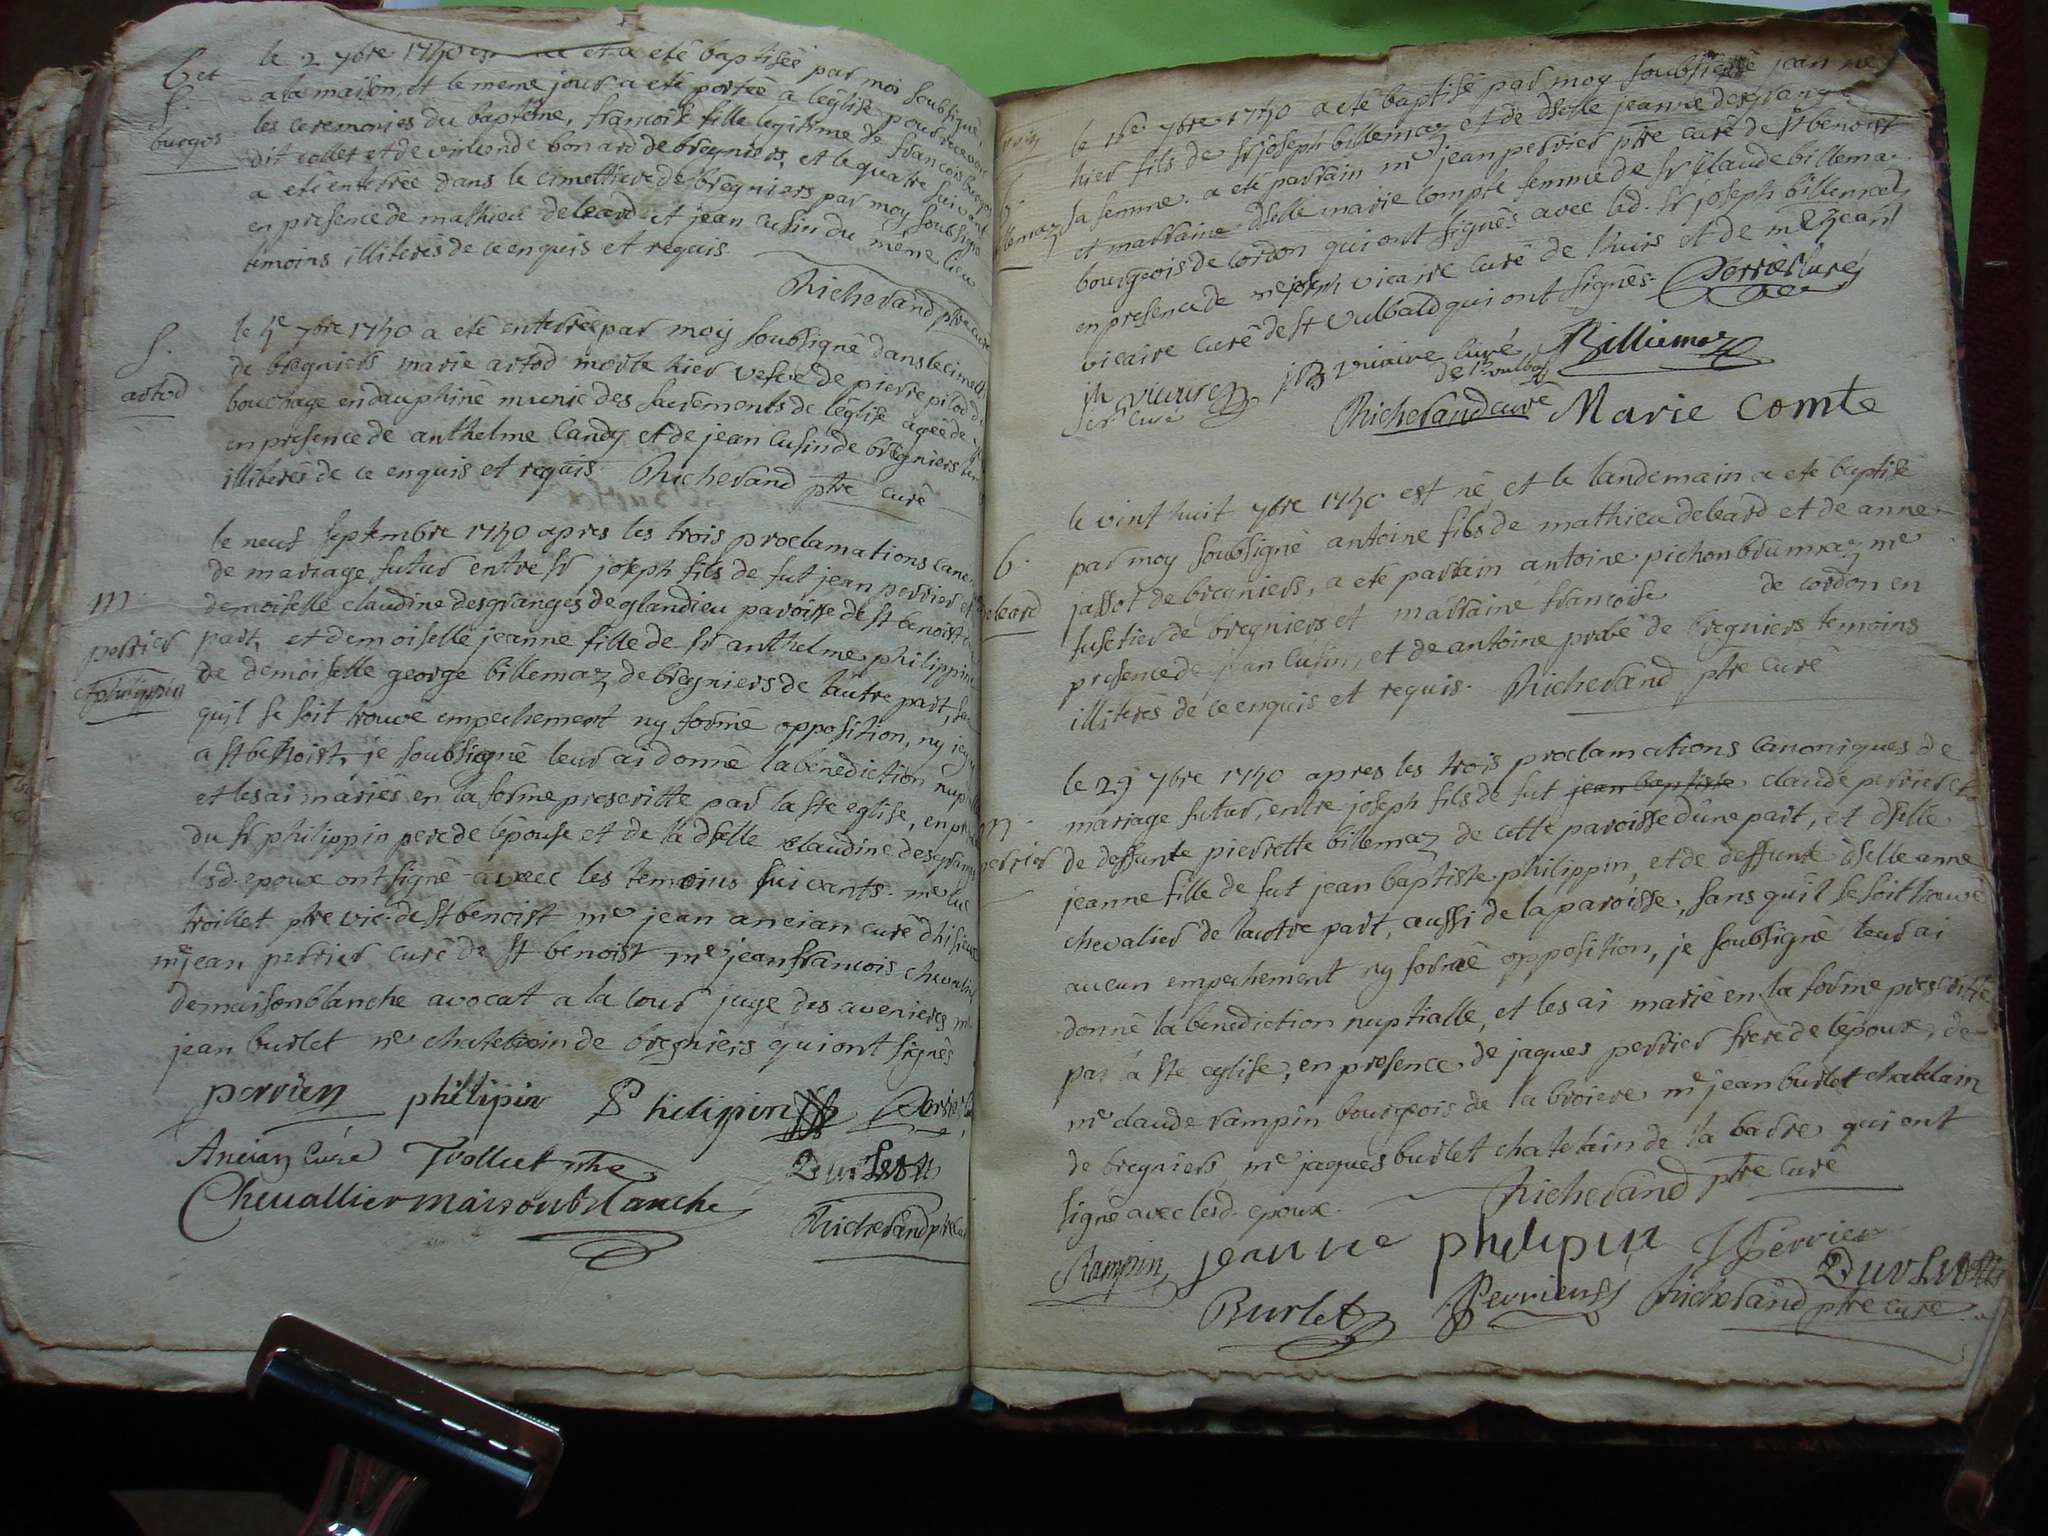 B et
S.
burgos
le 2 7bre 1740 est née et a eté baptisée par moi soubsigné
a la maison, et le meme jour a eté portée a l'eglise pour recevoir
les ceremonies du baptême, francoise fille legitime de francois burgos
dit collet et de bonard de bregniers, et le quatre suivant
a eté enterrée dans le cimettiere de bregniers par moy soubsigné
en presence de mathieu deleard et jean cusin du même lieu
temoins illiterés de ce enquis et requis.
Richerand ptre curé
S.
artod
le 5e 7bre 1740 a eté enterrée par moy soubsigné dans le cimett
de bregniers marie artod morte hier vefve de pierre pilod du
bouchage en dauphiné munie des sacrements de l'eglise agée de
en presence de anthelme Candy et de jean Cusin de bregniers
illiterés de ce enquis et requis. Richerand ptre curé
m.
perrier
et philippin
le neuf septembre 1740 apres les trois proclamations cano
de mariage futur entre sr joseph fils de fut jean perrier et
demoiselle claudine desgranges de glandieu paroisse de st benoist
part, et demoiselle jeanne fille de sr anthelme philippin
de demoiselle george billemaz de bregniers de l'autre part, sa
qu'il se soit trouvé empechement ny formé opposition, ny icy
a st benoist, je soubsigné leur ai donné la benediction nup
et les ai mariés en la forme prescritte par la ste eglise, en pr
du sr philippin pere de l'épouse et de la dselle claudine desgrang
lsd. epoux ont signé avec les temoins suivants. me luc
troillet ptre vic. de st benoist me jean ancian curé d'hisieu
me jean perrier curé de st benoist me jean francois chevalier
de maisonblanche avocat a la cour juge des avenieres me
jean burlet ne chatelain de bregniers qui ont signés
perrier philipin Philipin Perrier
Ancian Curé Trollliet ptre Burlet
Chevallier maisonblanche
Richerand ptre cu
b.
billemaz
le 16e 7bre 1740 a eté baptisé par moy soubsigné jean né
hier fils de sr joseph billemaz et de dselle jeanne desgrange
sa femme. a eté parrain me jean perrier ptre curé de st benoist
et marraine dselle marie compte femme de sr Claude billemaz
bourgeois de cordon qui ont signés avec led. sr joseph billemaz
en presence de me jph vicaire curé de l'huis et de me jean
vicaire curé de st vulbald qui ont signés. Perrier curé
vicaire curé Billiemaz
de st vulbas
curé
Richerand curé Marie Comte
b.
deleard
le vint huit 7bre 1740 est né, et le landemain a eté baptisé
par moy soubsigné antoine fils de mathieu deleard et de anne
jassot de bregniers, a eté parrain antoine pichon brumaz me
fusetier de bregniers et marraine francoise de cordon en
presence de jean Cusin, et de antoine probé de bregniers temoins
illiterés de ce enquis et requis. Richerand ptre curé
m.
perrier
le 29 7bre 1740 apres les trois proclamations canoniques de
mariage futur, entre joseph fils de fut jean baptiste claude perrier et
de deffunte pierrette billemaz de cette paroisse d'une part, et dselle
jeanne fille de fut jean baptiste philippin, et de deffunte dselle anne
chevalier de l'autre part, aussi de la paroisse, sans qu'il se soit trouvé
aucun empechement ny formé opposition, je soubsigné leur ai
donné la benediction nuptialle, et les ai marié en la forme prescritte
par la ste eglise, en presence de jaques perrier frere de l'epoux, de
me claude rampin bourgeois de la broiere me jean burlet chatelain
de bregniers, me jaques burlet chatelain de la badre qui ont
signé avec lesd. epoux. Richerand ptre curé
Rampin jeanne philipin Perrier
Burlet
Burlet Perrier Richerand ptre curé